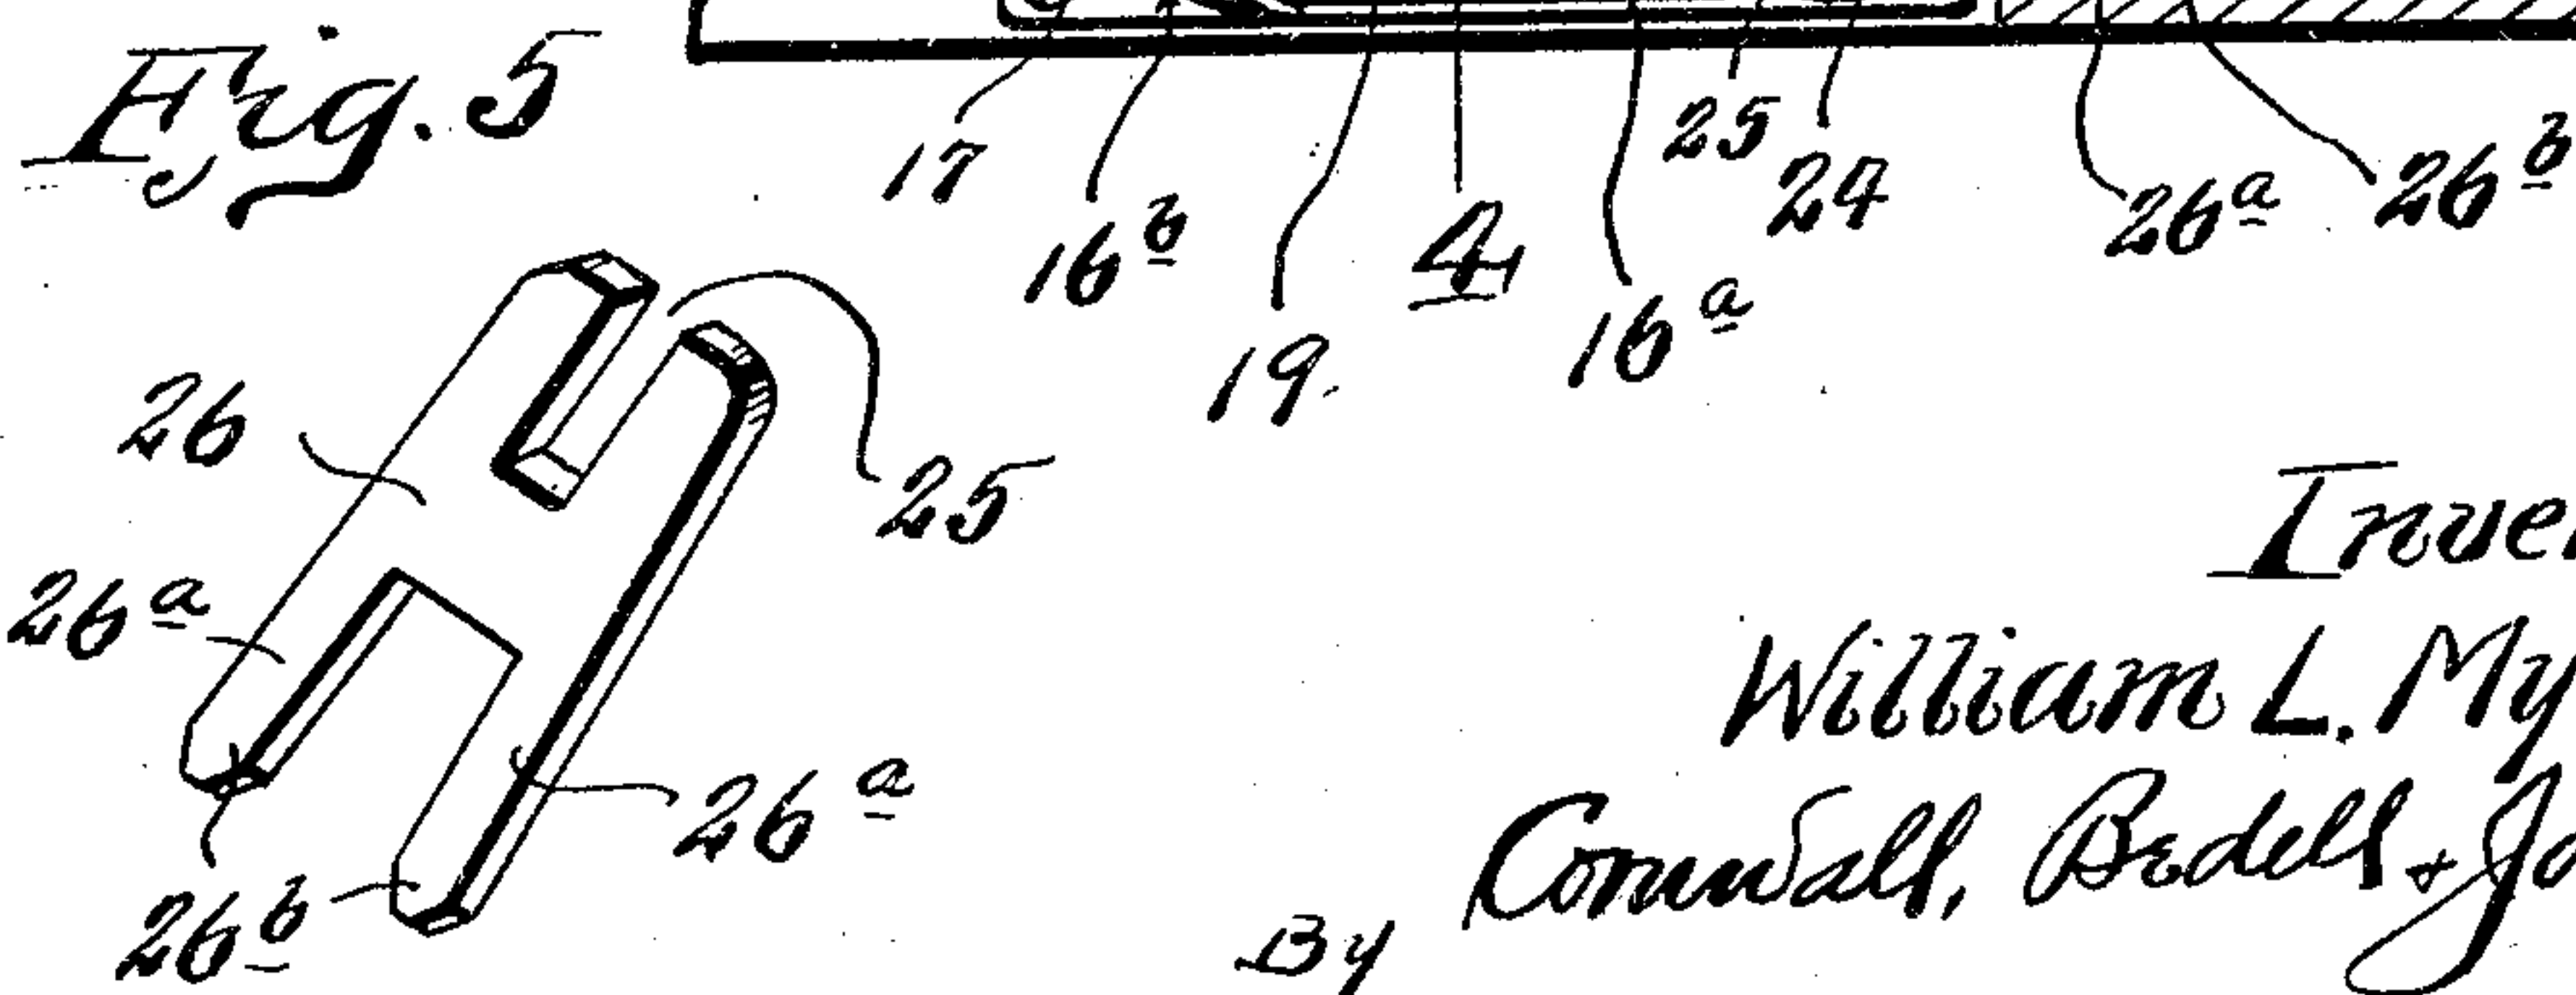 Fig. 5
17
16b
19
4
16a
25
24
26a
26b
26
25
26a
26a
26b
Inve
William L. My
By Cornwall, Bedell + Ja